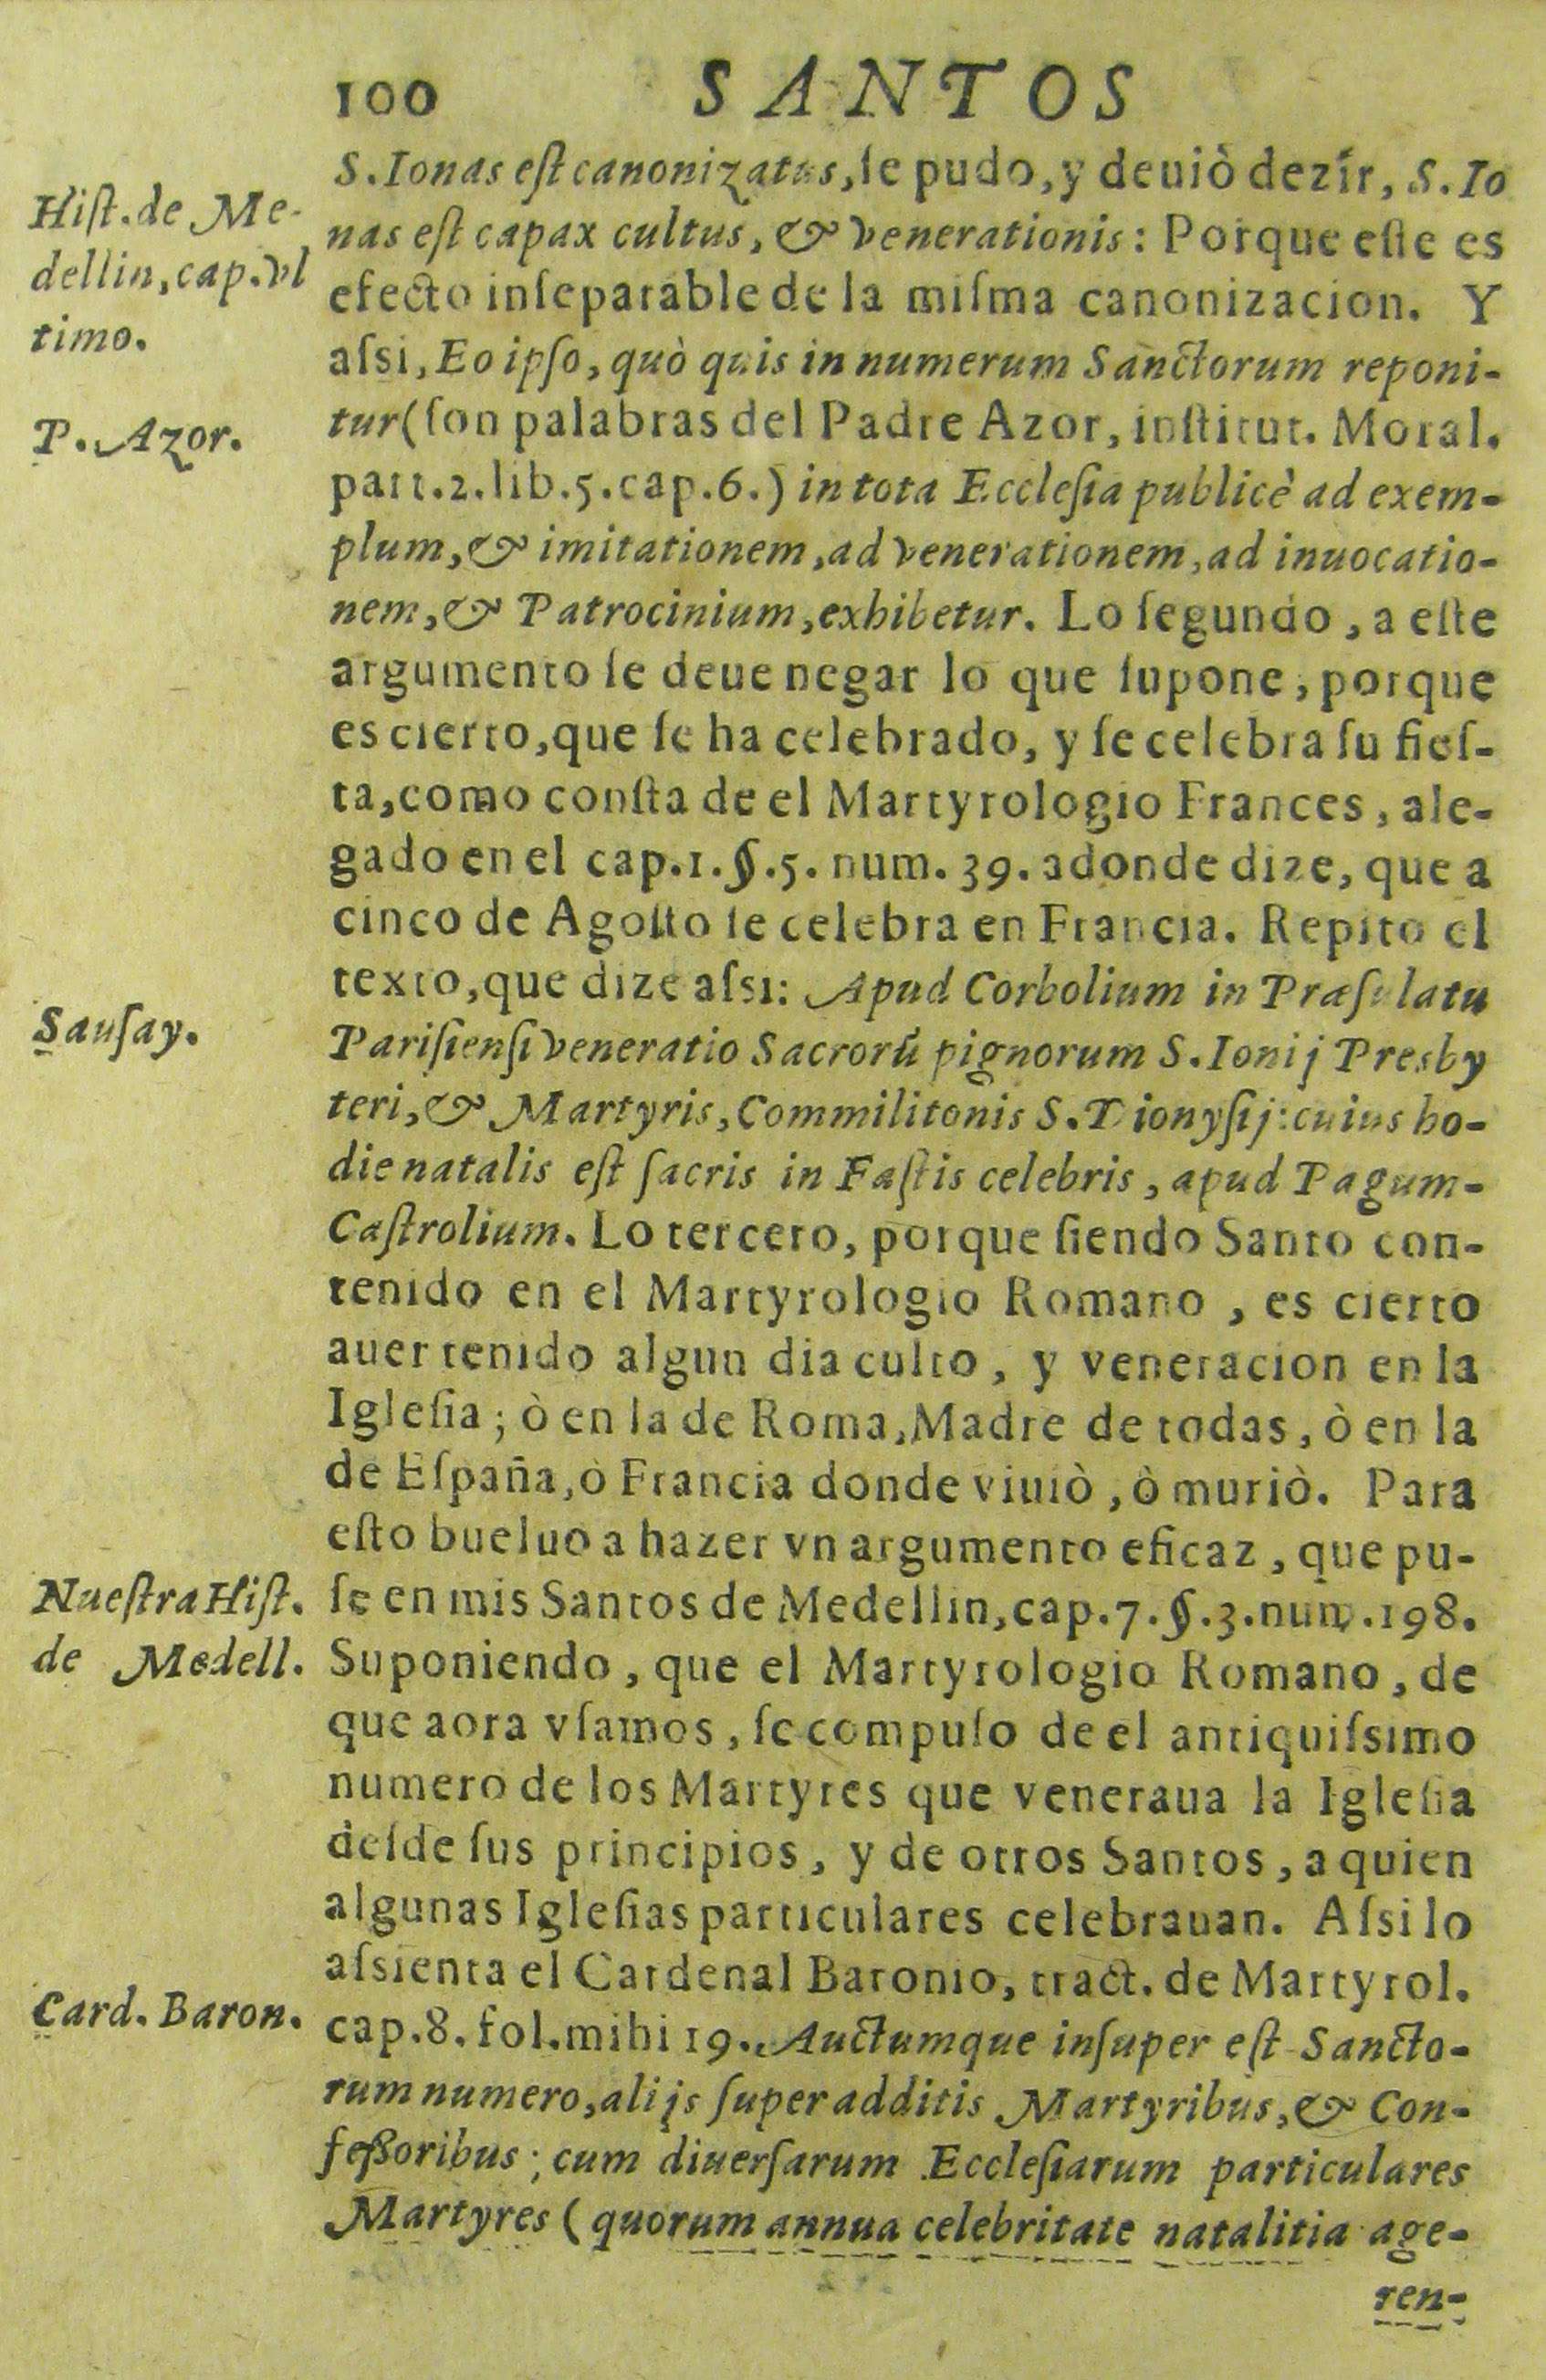 100 SANTOS
S. Ionas est canonizatus, se pudo, y deuiò dezir, S. Io
nas est capax cultus, & venerationis: Porque este es
efecto inseparable de la misma canonizacion. Y
assi, Eo ipso, quò quis in numerum Sanctorum reponi-
tur (son palabras del Padre Azor, institut. Moral.
part. 2. lib. 5. cap. 6.) in tota Ecclesia publicè ad exem-
plum, & imitationem, ad venerationem, ad inuocatio-
nem, & Patrocinium, exhibetur. Lo segundo, a este
argumento se deue negar lo que supone, porque
es cierto, que se ha celebrado, y se celebra su fies-
ta, como consta de el Martyrologio Frances, ale-
gado en el cap. 1. §. 5. num. 39. adonde dize, que a
cinco de Agosto se celebra en Francia. Repito el
texto, que dize assi: Apud Corbolium in Præsulatu
Parisiensi veneratio Sacrorũ pignorum S. Ionij Presby
teri, & Martyris, Commilitonis S. Dionysij: cuius ho-
die natalis est sacris in Fastis celebris, apud Pagum-
Castrolium. Lo tercero, porque siendo Santo con-
tenido en el Martyrologio Romano, es cierto
auer tenido algun dia culto, y veneracion en la
Iglesia; ò en la de Roma, Madre de todas, ò en la
de España, ò Francia donde viuiò, ò muriò. Para
esto bueluo a hazer vn argumento eficaz, que pu-
se en mis Santos de Medellin, cap. 7. §. 3. num. 198.
Suponiendo, que el Martyrologio Romano, de
que aora vsamos, se compuso de el antiquissimo
numero de los Martyres que veneraua la Iglesia
desde sus principios, y de otros Santos, a quien
algunas Iglesias particulares celebrauan. Assi lo
assienta el Cardenal Baronio, tract. de Martyrol.
cap. 8. fol. mihi 19. Auctumque insuper est Sancto-
rum numero, alijs superadditis Martyribùs, & Con-
feßoribus; cum diuersarum Ecclesiarum particulares
Martyres (quorum annua celebritate natalitia age-
ren-
Hist. de Me-
dellin, cap. vl
timo.
P. Azor.
Sausay.
Nuestra Hist.
de Medell.
Card. Baron.